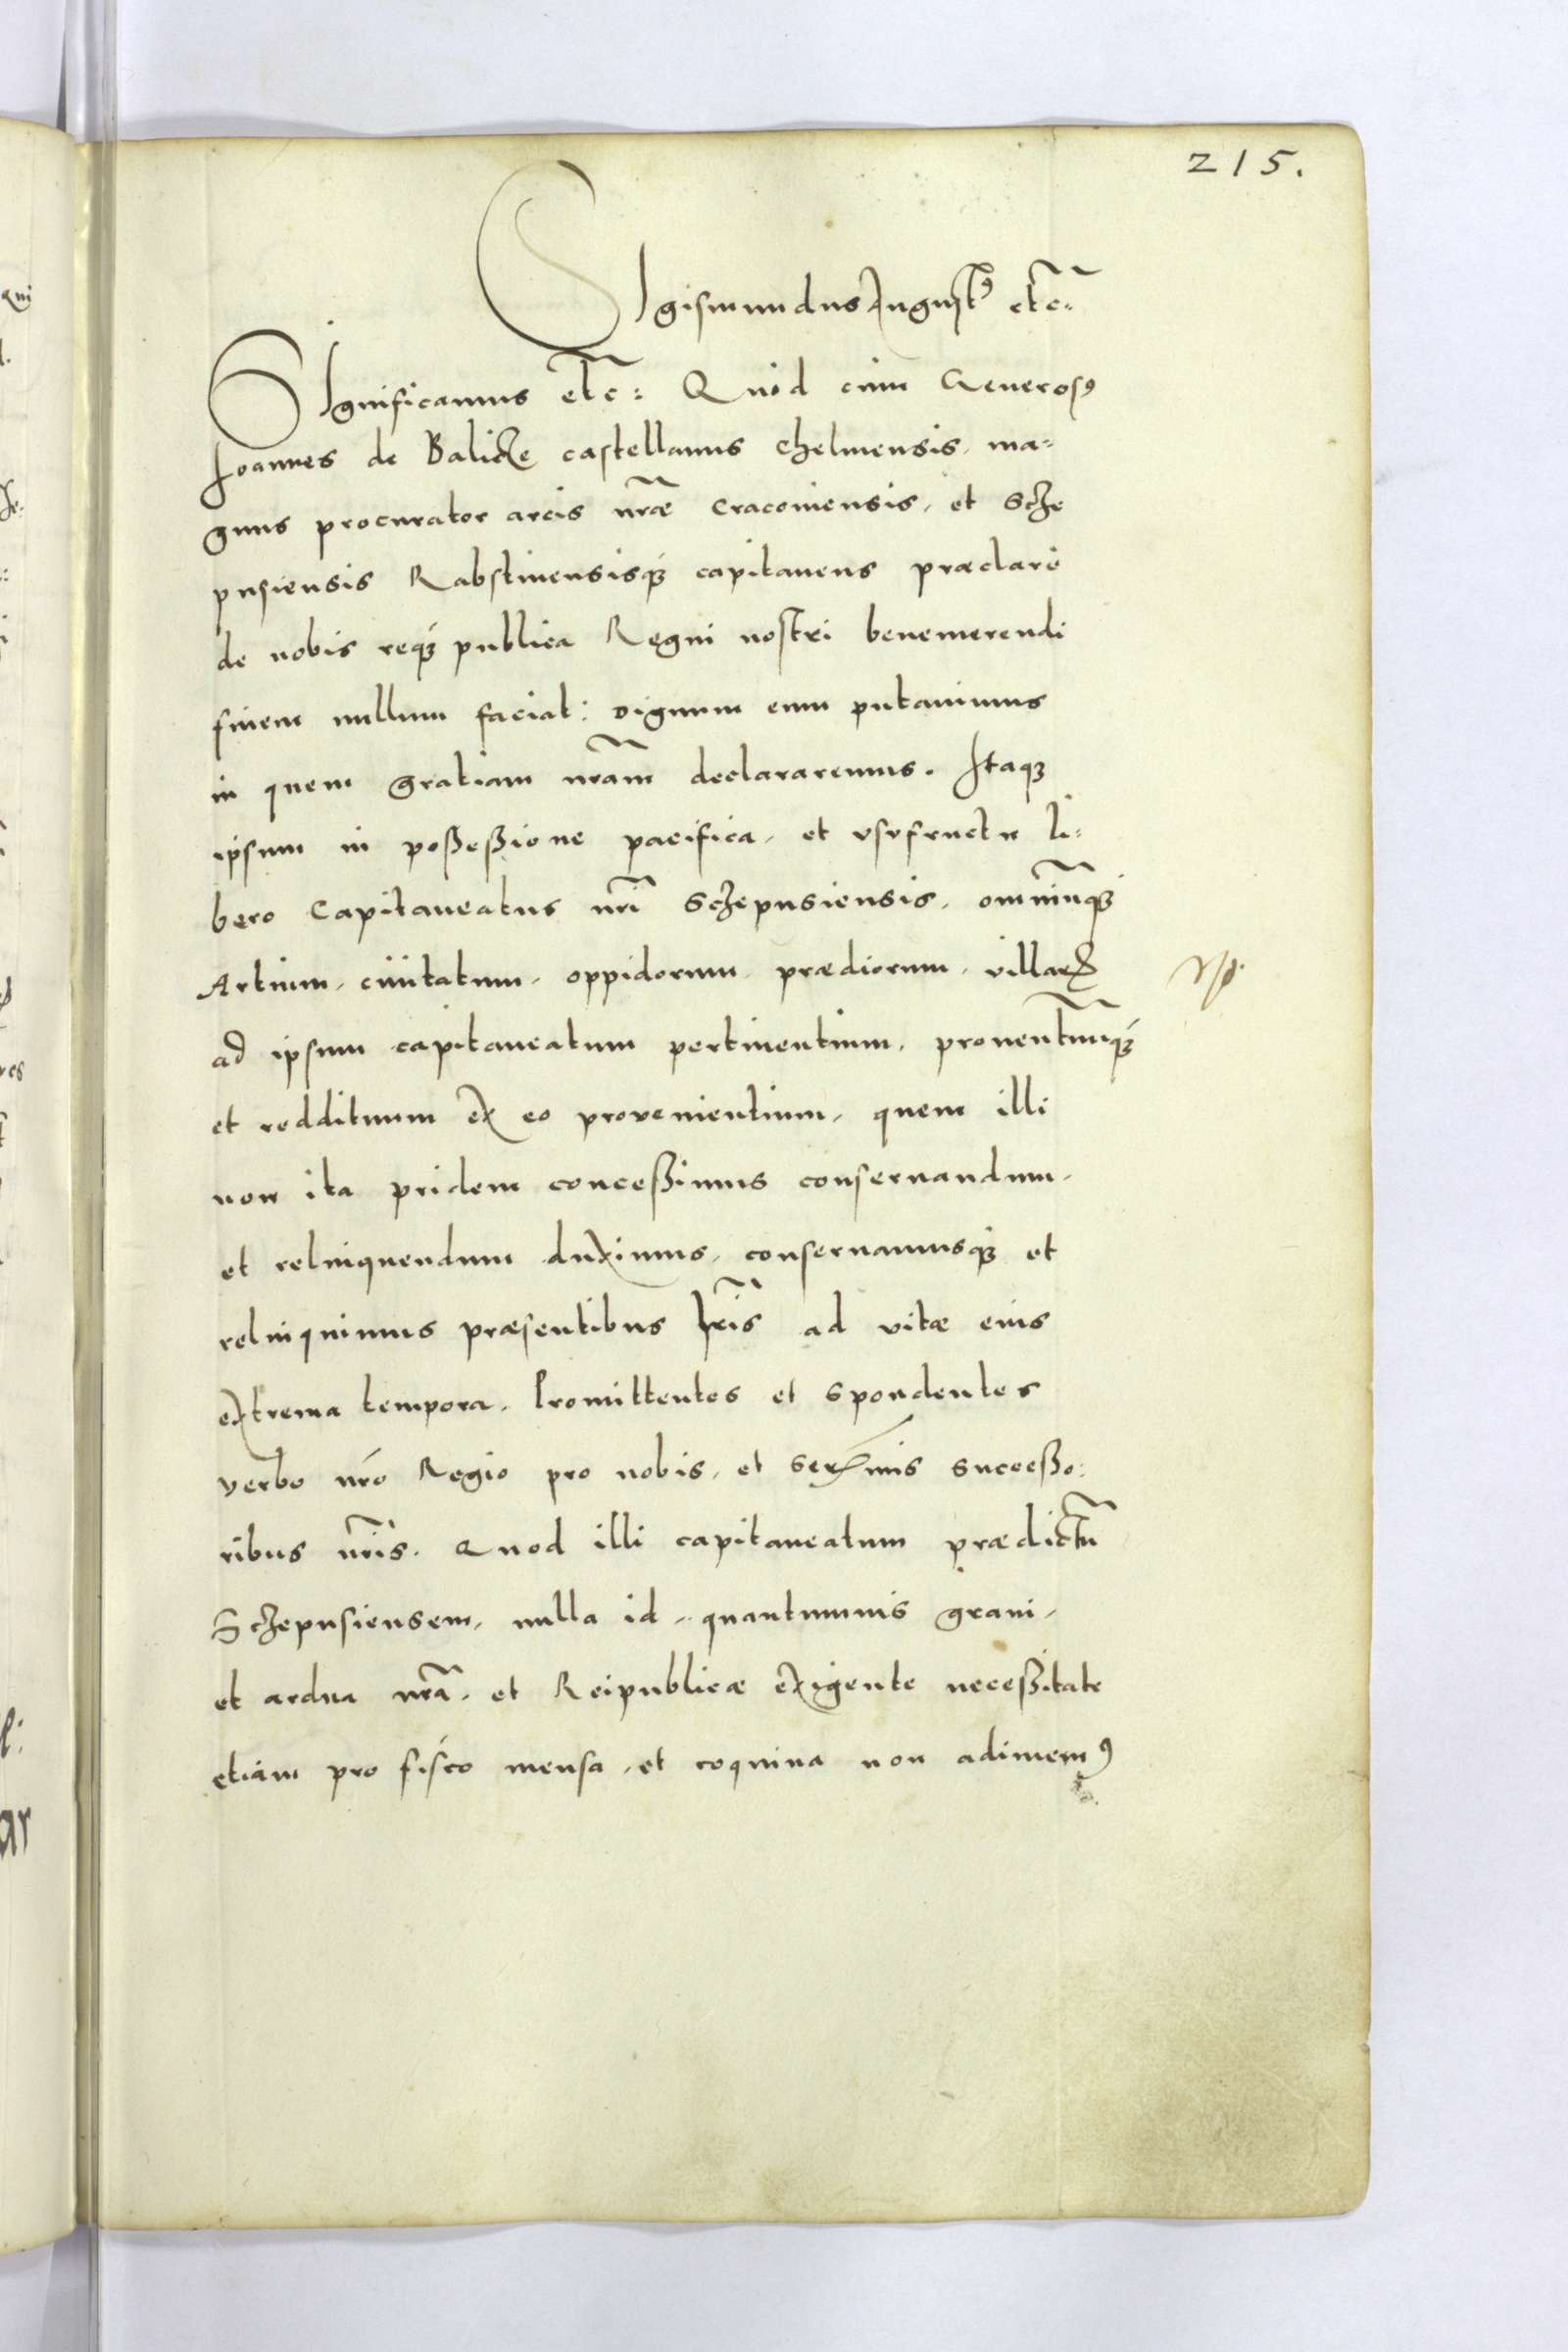 215.
Sigismundus Augustꝰ etc̃.
Significamus etc̃: Quòd cùm Generosꝰ
Ioannes de Balicze castellanus Chelmensis, ma=
gnus procurator arcis nr̃æ Cracouiensis, et Scze
pusiensis Rabstinensisq́ꝫ capitaneus præclarè
de nobis req́ꝫ publica Regni nostri benemerendi
finem nullum faciat: Dignum eum putauimus
in quem gratiam nr̃am declararemus. Itaqꝫ
ipsum in poßeßione pacifica, et vsufructu li=
bero Capitaneatus nr̃i Sczepusiensis, omniũqꝫ
Artium, ciuitatum, oppidorum, prædiorum, villarꝝ
ad ipsum capitaneatum pertinentium, prouentuũq́ꝫ
et reddituum ex eo prouenientium, quem illi
non ita pridem conceßimus conseruandum,
et relinquendum duximus, conseruamusq́ꝫ et
relinquimus præsentibus lr̃is ad vitæ eius
extrema tempora. Promittentes et spondentes
verbo nr̃o Regio pro nobis, et Serᵐis succeßo=
ribus nr̃is. Quod illi capitaneatum prædictũ
Sczepusiensem, nulla id, quantumuis graui,
et ardua nr̃a, et Reipublicæ exigente neceßitate
etiam pro fisco mensa, et coquina non adimemꝰ